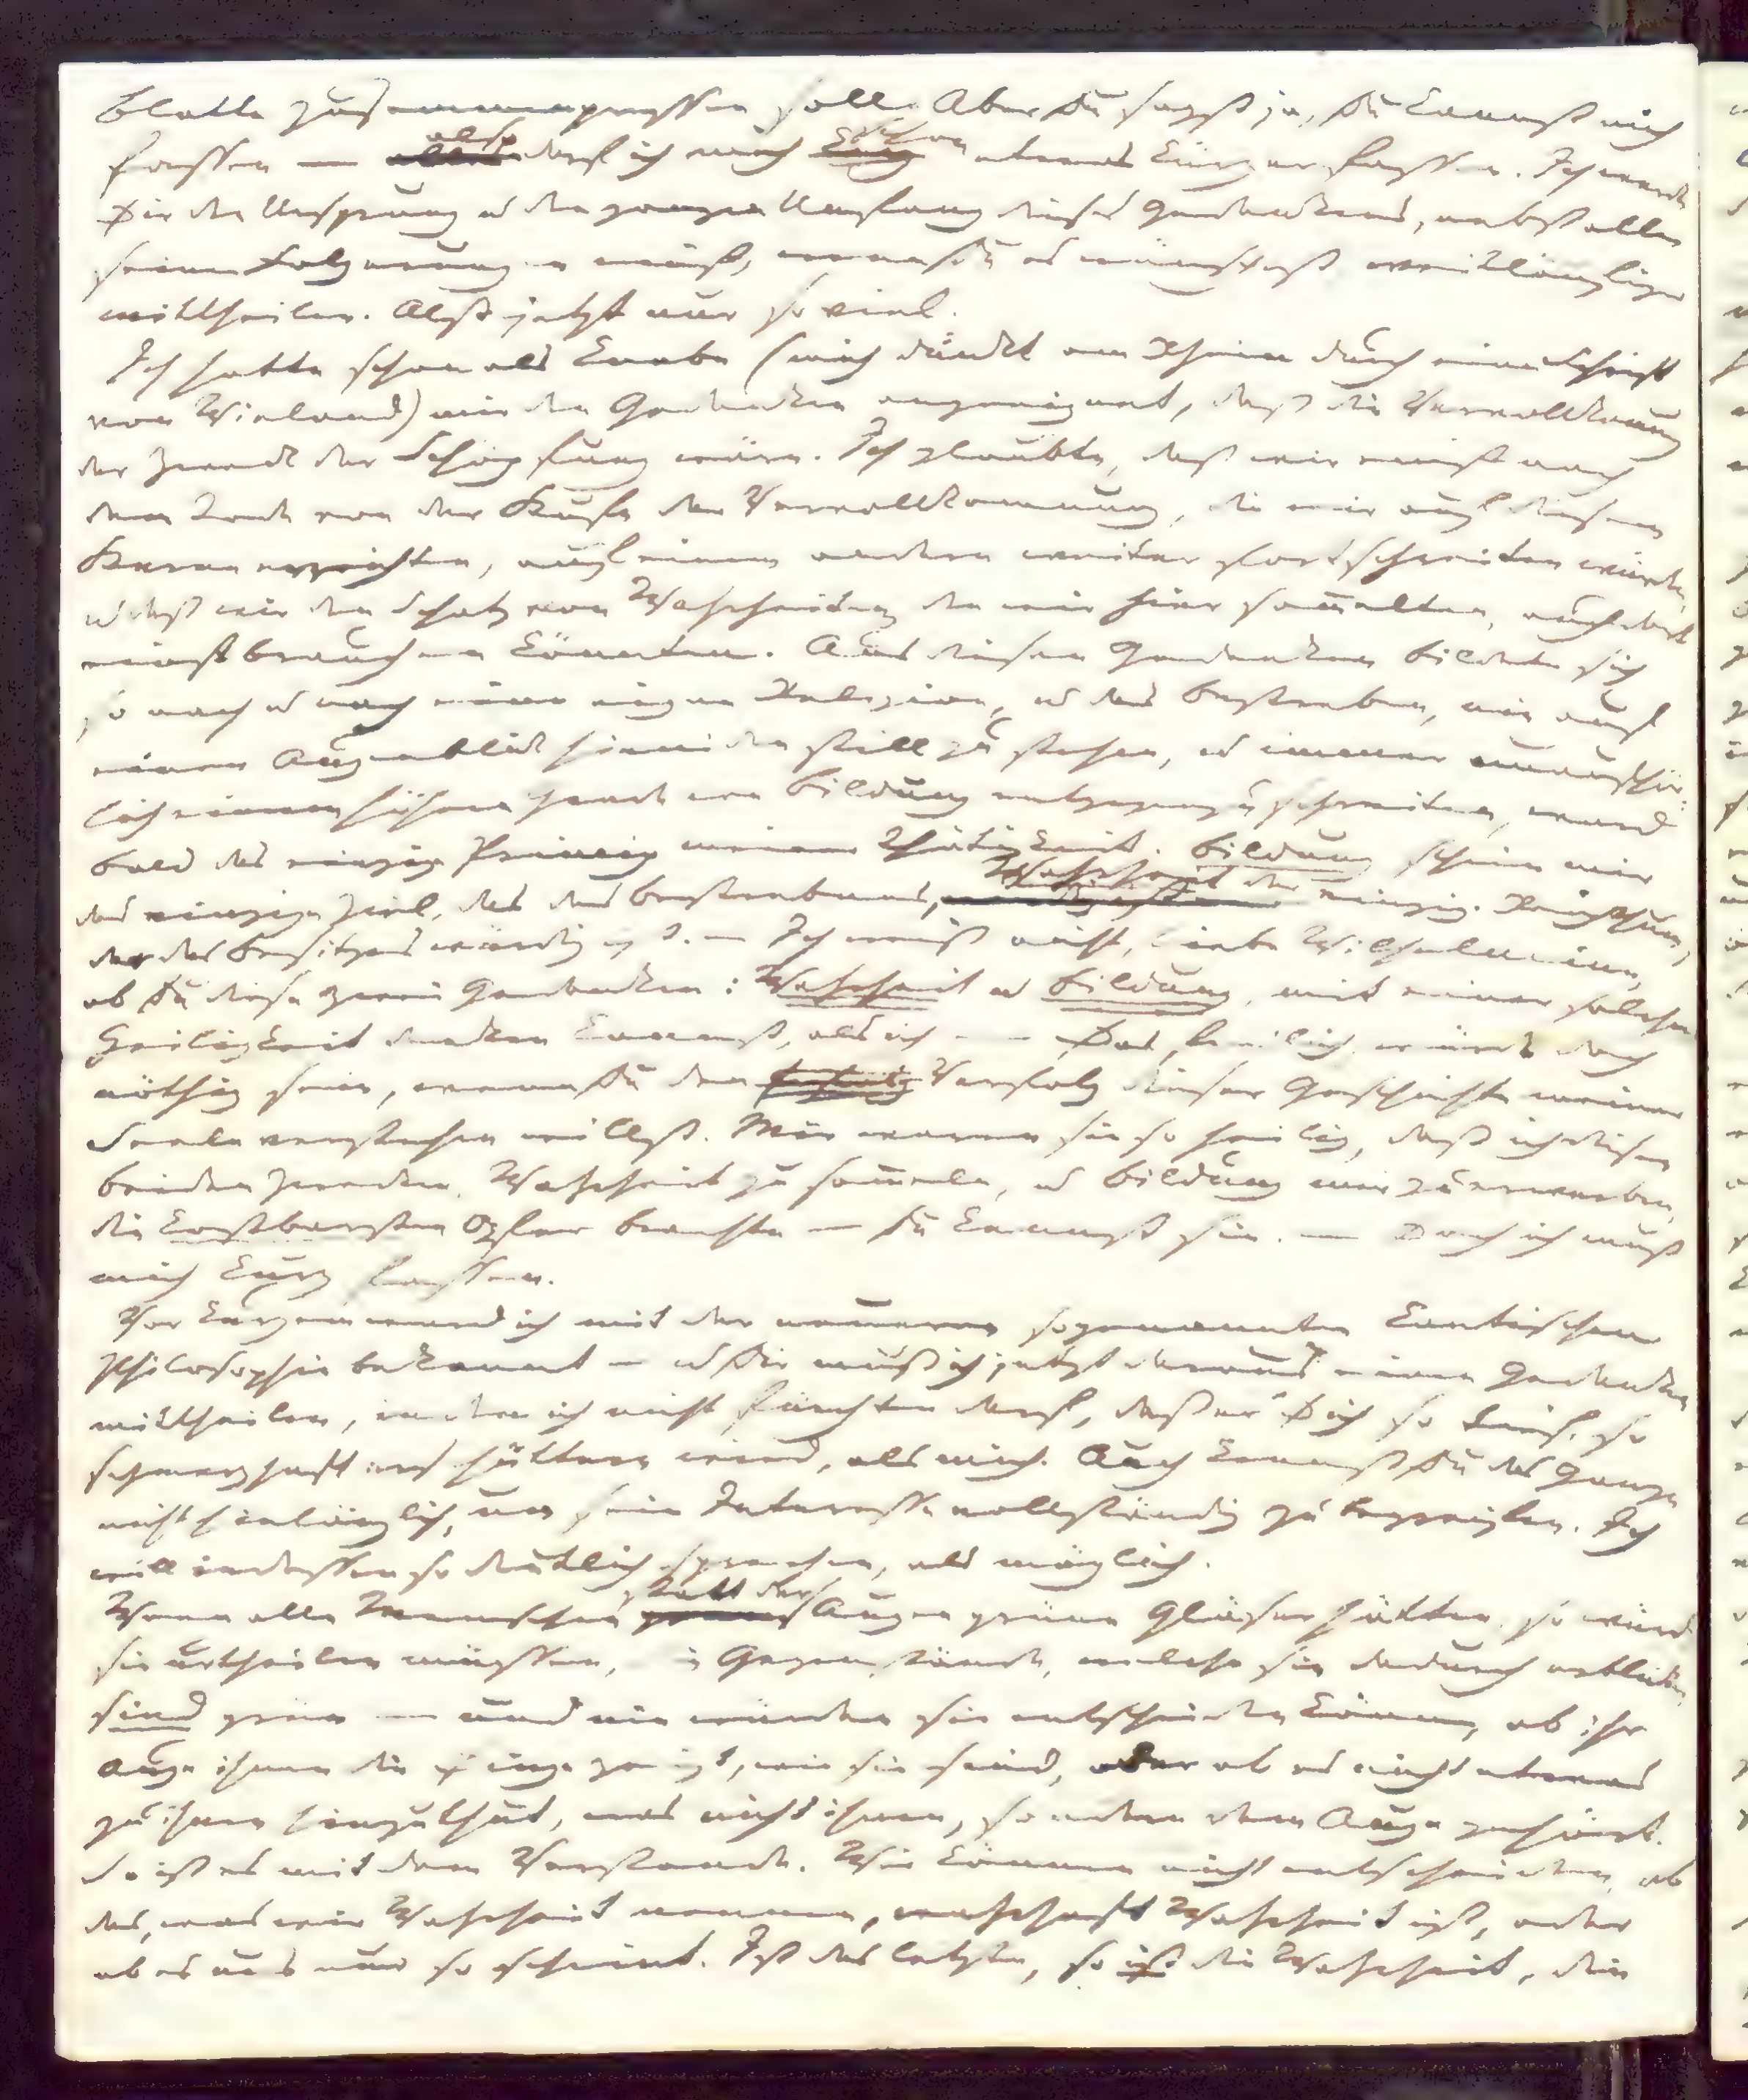 Blatte zusammenpressen soll. Aber Du sagst ja, Du kennst mich
fassen — also darf ich mich schon etwas kürzer fassen. Ich werde
Dir den Ursprung u den ganzen Umfang dieses Gedankens, nebst allen
seinen Folgerungen einst, wenn Du es wünschest, weitläufiger
mittheilen. Also jetzt nur so viel.
Ich hatte schon als Knabe (mich dünkt am Rhein durch eine Schrift
von Wieland) mir den Gedanken angeeignet, daß die Vervollkomnung
der Zweck der Schöpfung wäre. Ich glaubte, daß wir einst nach
dem Tode von der Stufe der Vervollkomnung, die wir auf diesem
Sterne erreichten, auf einem andern weiter fortschreiten würden,
u daß wir den Schatz von Wahrheiten, den wir hier sammelten, auch dort
einst brauchen könnten. Aus diesen Gedanken bildete sich
so nach u nach eine eigne Religion, u das Bestreben, nie auf
einen Augenblick hienieden still zu stehen, u immer unaufhör-
lich einem höhern Grade von Bildung entgegenzuschreiten, ward
bald das einzige Princip meiner Thätigkeit. Bildung schien mir
das einzige Ziel, das des Bestrebens, Wahrheit der einzige Reichthum,
der des Besitzes würdig ist. — Ich weiß nicht, liebe Wilhelmine,
ob Du diese zwei Gedanken: Wahrheit u Bildung, mit einer solchen
Heiligkeit denken kannst, als ich — — Das freilich, würde doch
nöthig sein, wenn Du den Verfolg dieser Geschichte meiner
Seele verstehen willst. Mir waren sie so heilig, daß ich diesen
beiden Zwecken, Wahrheit zu sammeln, u Bildung mir zu erwerben,
die kostbarsten Opfer brachte — Du kennst sie. — Doch ich muß
mich kurz fassen.
Vor kurzem ward ich mit der neueren sogenannten Kantischen
Philosophie bekannt — u Dir muß ich jetzt daraus einen Gedanken
mittheilen, indem ich nicht fürchten darf, daß er Dich so tief, so
schmerzhaft erschüttern wird, als mich. Auch kennst Du das Ganze
nicht hinlänglich, um sein Interesse vollständig zu begreifen. Ich
will indessen so deutlich sprechen, als möglich.
Wenn alle Menschen statt der Augen grüne Gläser hätten, so würden
sie urtheilen müssen, die Gegenstände, welche sie dadurch erblicken,
sind grün — und nie würden sie entscheiden können, ob ihr
Auge ihnen die Dinge zeigt, wie sie sind, oder ob es nicht etwas
zu ihnen hinzuthut, was nicht ihnen, sondern dem Auge gehört.
So ist es mit dem Verstande. Wir können nicht entscheiden, ob
das, was wir Wahrheit nennen, wahrhaft Wahrheit ist, oder
ob es uns nur so scheint. Ist das letzte, so ist die Wahrheit, die